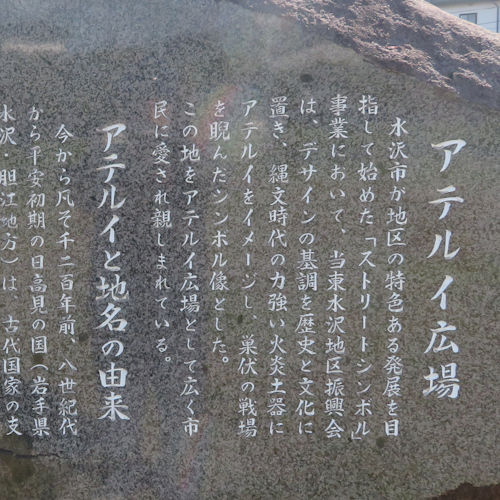 アテルイ広場
水沢市が地区の特色ある発展を目
指して始めた「ストリートシンボル」
事業において、当東水沢地区振興会
は、デザインの基調を歴史と文化に
置き、縄文時代の力強い火炎土器に
アテルイをイメージし、巣伏の戦場
を睨んだシンボル像とした。
この地をアテルイ広場として広く市
民に愛され親しまれている。
アテルイと地名の由来
今から凡そ千二百年前、八世紀代
から平安初期の日高見の国（岩手県
水沢・胆江地方）は、古代国家の支